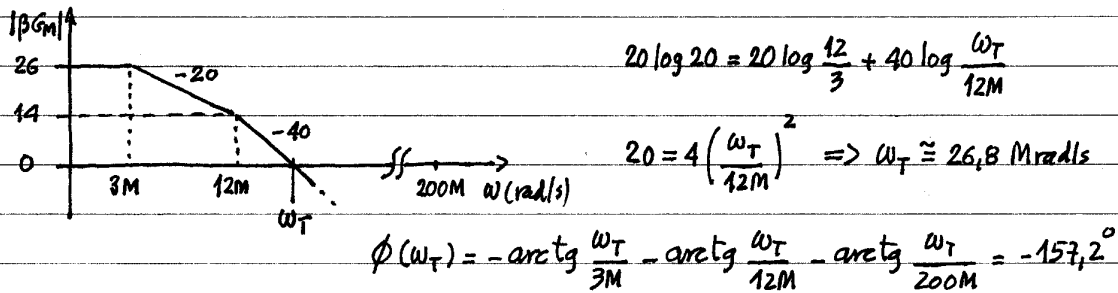 |βG_M|
26
14
0
-20
-40
3M 12M 200M ω(rad/s)
ω_T
20 log 20 = 20 log 12/3 + 40 log ω_T/12M
20 = 4 (ω_T/12M)^2 => ω_T ≅ 26,8 Mrad/s
ϕ(ω_T) = - arctg ω_T/3M - arctg ω_T/12M - arctg ω_T/200M = -157,2°